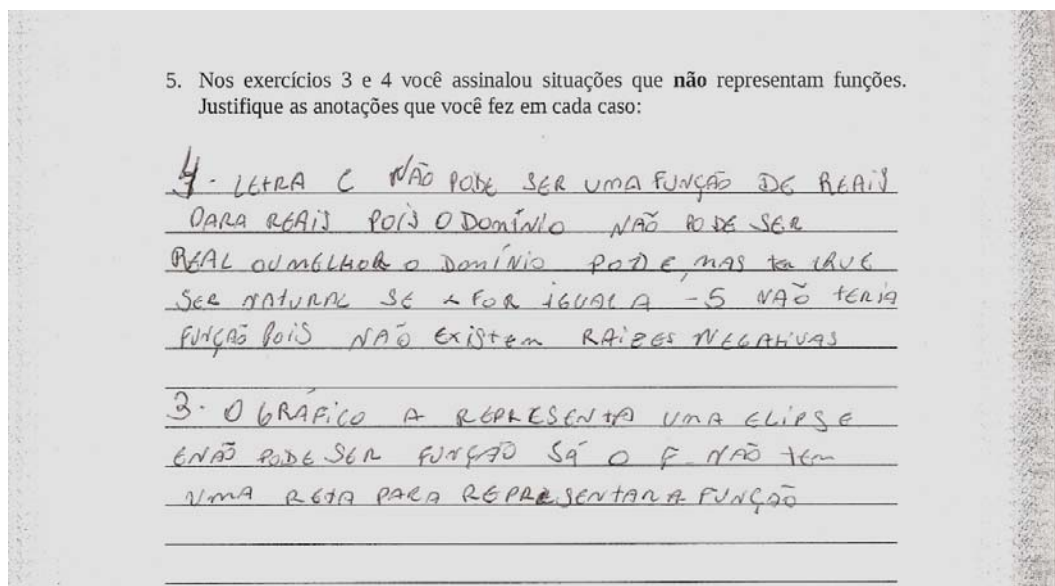 5. Nos exercícios 3 e 4 você assinalou situações que não representam funções.
Justifique as anotações que você fez em cada caso:
4. LETRA C NÃO PODE SER UMA FUNÇÃO DE REAIS
PARA REAIS POIS O DOMÍNIO NÃO PODE SER
REAL OU MELHOR O DOMÍNIO PODE, MAS TEM QUE
SER NATURAL SE X FOR IGUAL A -5 NÃO TERIA
FUNÇÃO POIS NÃO EXISTEM RAÍZES NEGATIVAS
3. O GRÁFICO A REPRESENTA UMA ELIPSE
E NÃO PODE SER FUNÇÃO O F NÃO TEM
UMA RETA PARA REPRESENTAR A FUNÇÃO